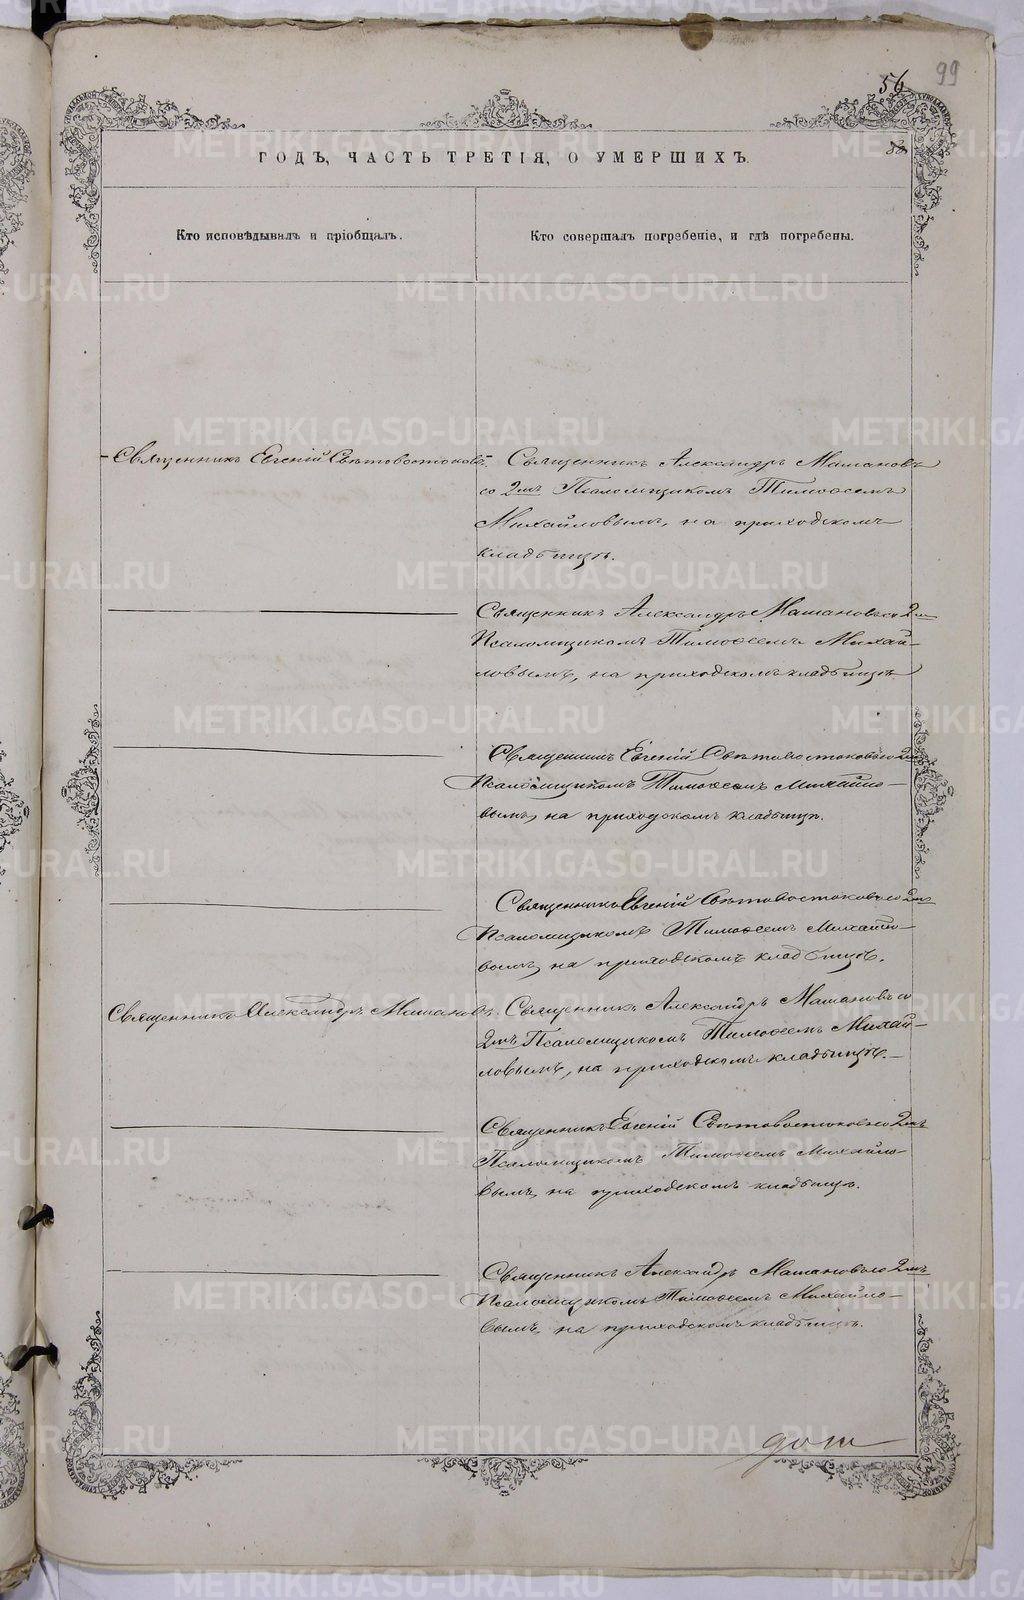 99
56
ГОДЪ, ЧАСТЬ ТРЕТІЯ, О УМЕРШИХЪ.
Кто исповѣдывалъ и пріобщалъ.
Кто совершалъ погребеніе, и гдѣ погребены.
Священникъ Евгеній Свѣтовостоковъ.
Священникъ Александръ Машановъ
со 2мъ Псаломщикомъ Тимоѳеемъ
Михайловымъ, на приходскомъ
кладбищѣ.
Священникъ Александръ Машановъ со 2мъ
Псаломщикомъ Тимоѳеемъ Михай-
ловымъ, на приходскомъ кладбищѣ
Священникъ Евгеній Свѣтовостоковъ со 2мъ
Псаломщикомъ Тимоѳеемъ Михайло-
вымъ, на приходскомъ кладбищѣ.
Священникъ Евгеній Свѣтовостоковъ со 2мъ
Псаломщикомъ Тимоѳеемъ Михайло-
вымъ, на приходскомъ кладбищѣ.
Священникъ Александръ Машановъ.
Священникъ Александръ Машановъ со
2мъ Псаломщикомъ Тимоѳеемъ Михай-
ловымъ, на приходскомъ кладбищѣ.
Священникъ Евгеній Свѣтовостоковъ со 2мъ
Псаломщикомъ Тимоѳеемъ Михайло-
вымъ, на приходскомъ кладбищѣ.
Священникъ Александръ Машановъ со 2мъ
Псаломщикомъ Тимоѳеемъ Михайло-
вымъ, на приходскомъ кладбищѣ.
METRIKI.GASO-URAL.RU